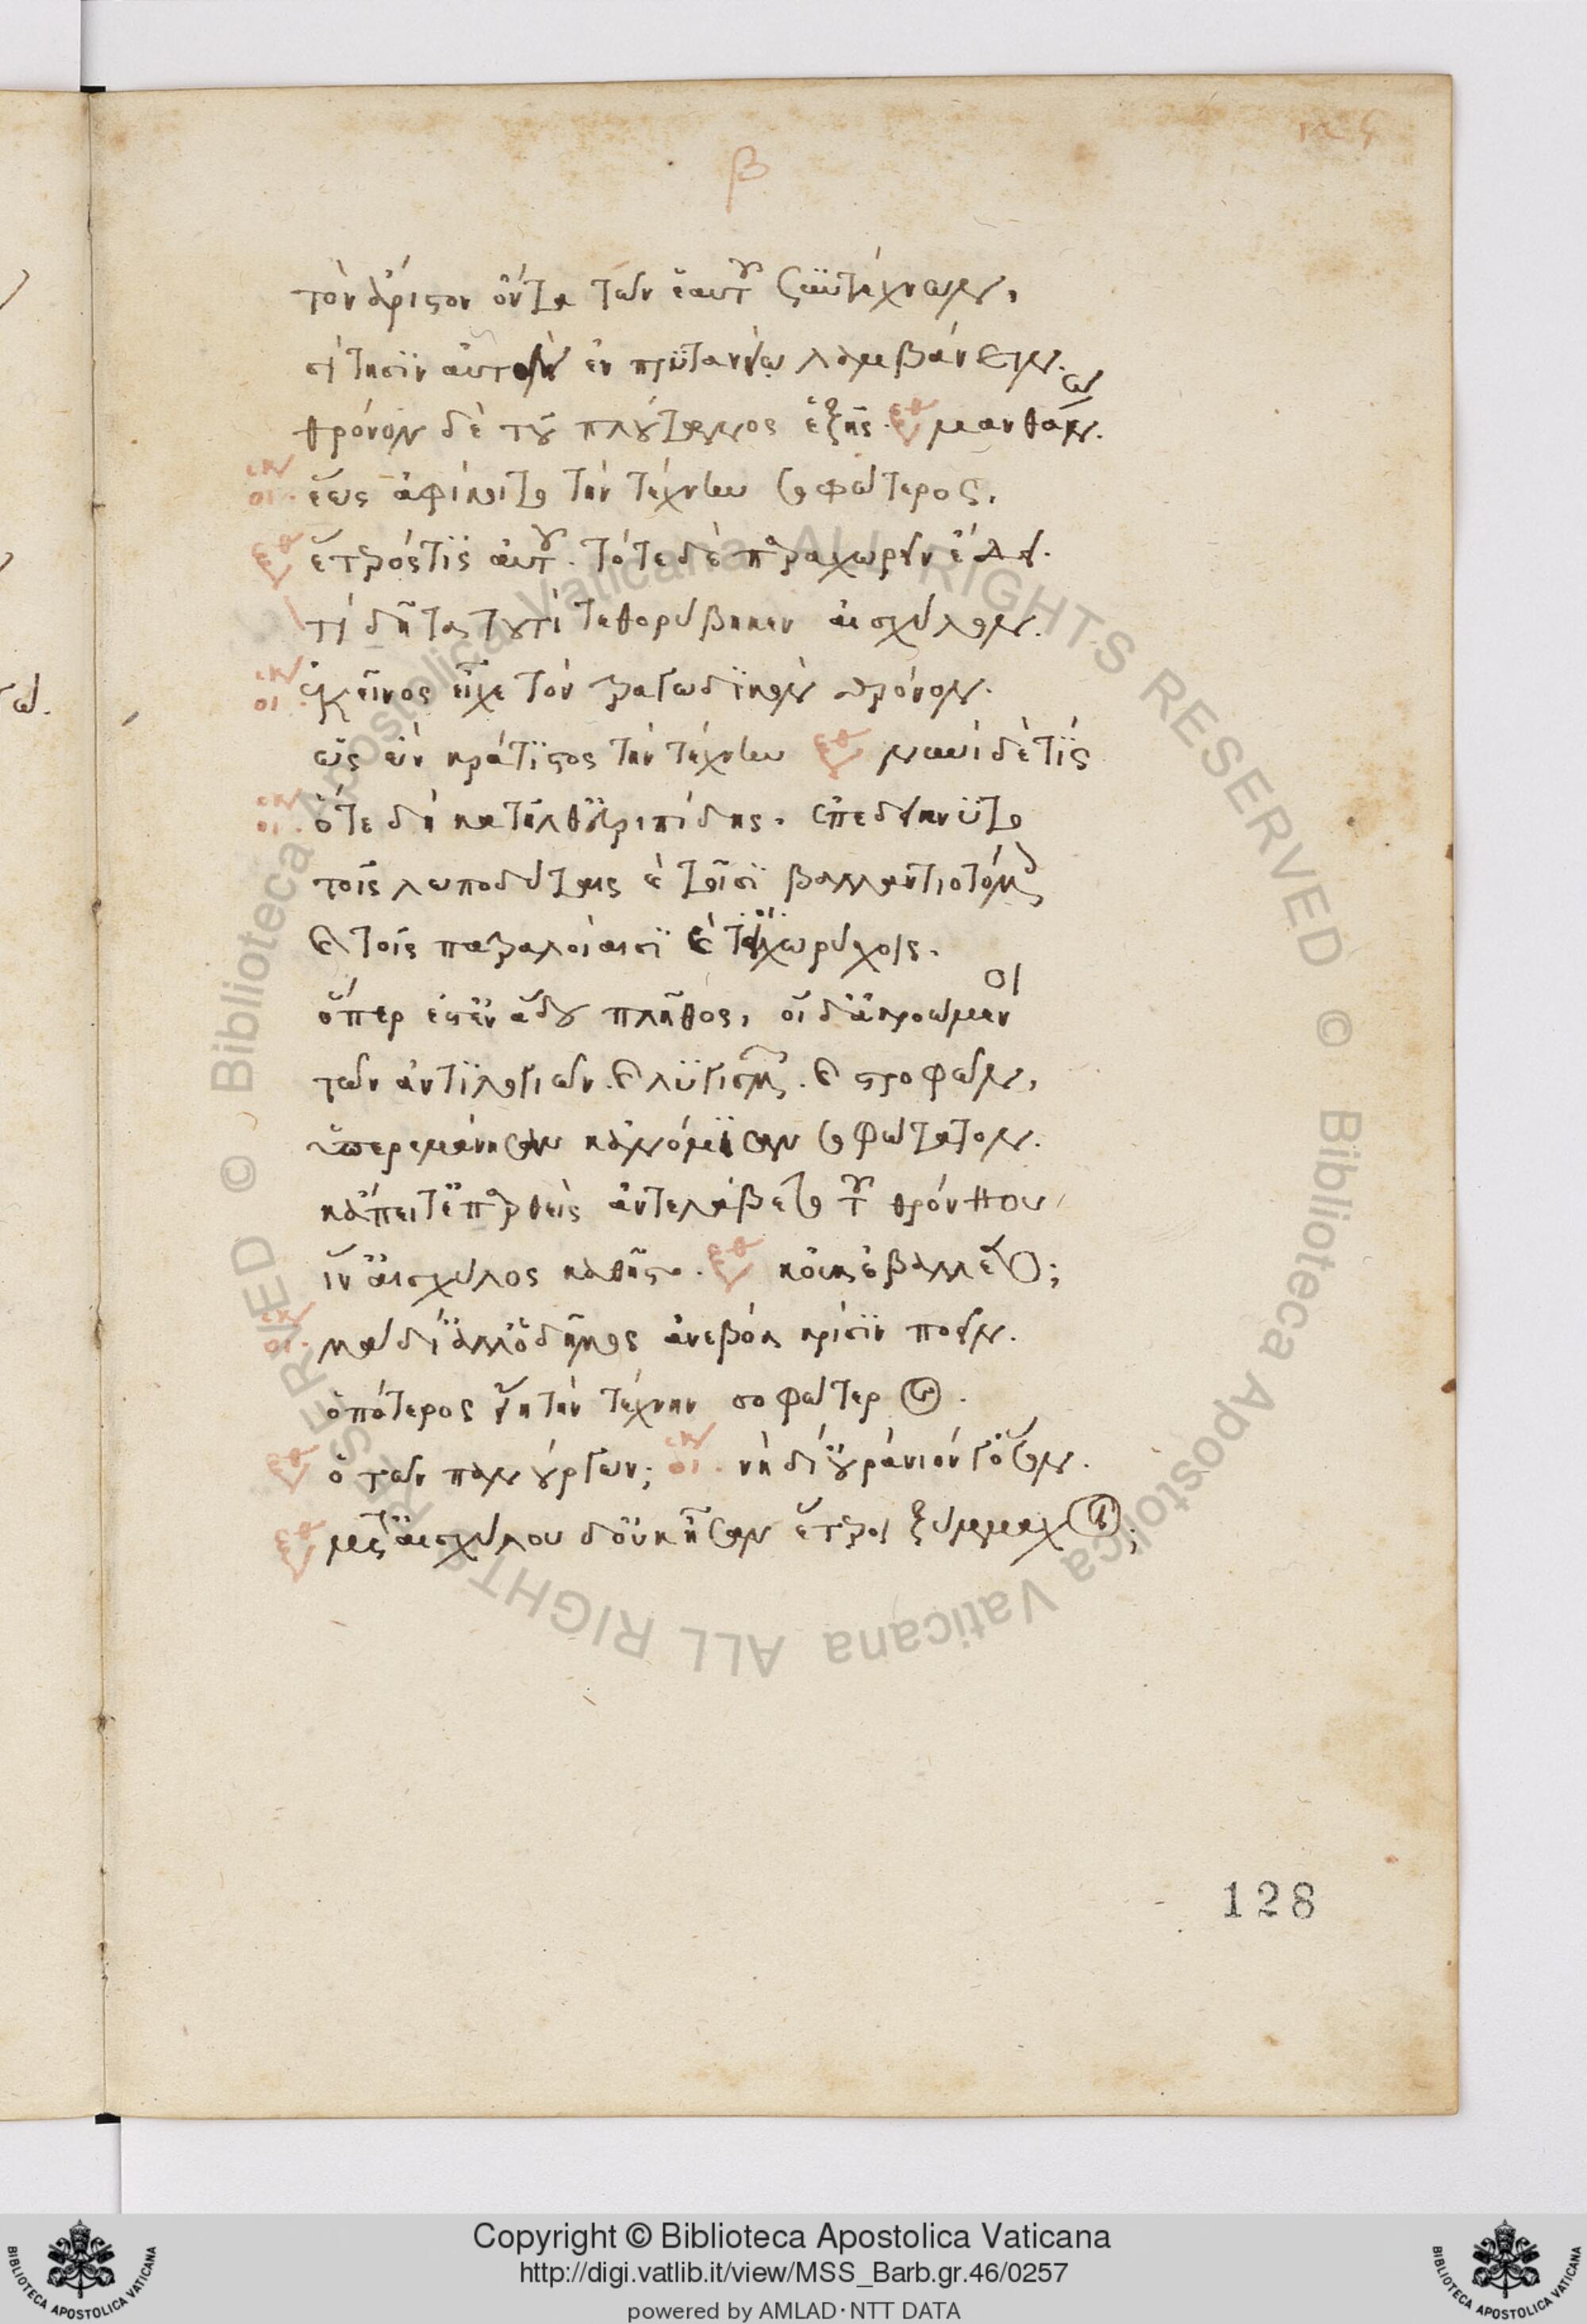 β
τὸν ἄριστον ὄντα τῶν ἑαυτοῦ συντέχνων,
σίτησιν αὐτὸν ἐν πρυτανείῳ λαμβάνειν.
θρόνον δὲ τοῦ πλούτωνος ἑξῆς. ξθ μανθάνω.
οικ. ἕως ἀφίκοιτο τὴν τέχνην σοφώτερος.
ξθ ἕτερός τις αὐτοῦ. τότε δὲ παραχωρεῖν ἔδει.
τί δῆτα τουτὶ τεθορύβηκεν αἰσχύλον.
οικ. ἐκεῖνος εἶχε τὸν τραγωδικὸν θρόνον.
ὡς ὢν κράτιστος τὴν τέχνην ξθ νυνὶ δὲ τίς
οικ. ὅτε δὴ κατῆλθ' εὐριπίδης. ἐπεδείκνυτο
τοῖς λωποδύταις καὶ τοῖσι βαλλαντιοτόμοις
καὶ τοῖς πατραλοίαισι καὶ τοιχωρύχοις.
ὅπερ ἔστ' ἐν ἅδου πλῆθος, οἱ δ' ἀκροώμενοι
τῶν ἀντιλογιῶν. καὶ λυγισμῶν. καὶ στροφῶν,
ὑπερεμάνησαν κἀνόμισαν σοφώτατον.
κἄπειτ' ἐπαρθεὶς ἀντελάβετο τοῦ θρόνου
ἵν' αἰσχύλος καθῆστο. ξθ κοὐκ ἐβάλλετο;
οικ. μὰ δί' ἀλλ' ὁ δῆμος ἀνεβόα κρίσιν ποεῖν.
ὁπότερος εἴη τὴν τέχνην σοφώτερος.
ξθ ὁ τῶν πανούργων; οικ. νὴ δί' οὐράνιόν γ' ὅσον.
ξθ μετ' αἰσχύλου δ' οὐκ ἦσαν ἕτεροι ξύμμαχοι;
128
Copyright © Biblioteca Apostolica Vaticana
http://digi.vatlib.it/view/MSS_Barb.gr.46/0257
powered by AMLAD·NTT DATA
© Biblioteca Apostolica Vaticana ALL RIGHTS RESERVED © Biblioteca Apostolica Vaticana ALL RIGHTS RESERVED
BIBLIOTECA APOSTOLICA VATICANA
BIBLIOTECA APOSTOLICA VATICANA